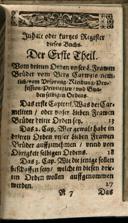 Inhalt oder kurzes Register
dieses Buchs.
Der Erste Theil.
Vom dritten Orden unser L. Frawen
Brüder vom Berg Carmelo
vom Ursprung, Kleidung, Pro-
fession, Privilegien und Gna-
den selbigen Ordens.
Das erste Capitel, Was der Car-
meliten / oder unser lieben Frawen
Brüder dritte Orden seye. 13
Das 2. Cap. Wer gewalt habe in
dritten Orden unser lieben Frawen
Brüder auffzunehmen / und von
Obrigkeit selbigen Ordens. 18
Das 3. Cap. Wie die jenige sollen
beschaffen seyn / welche in diesen drit-
ten Orden wollen auffgenommen
werden. 27
Das